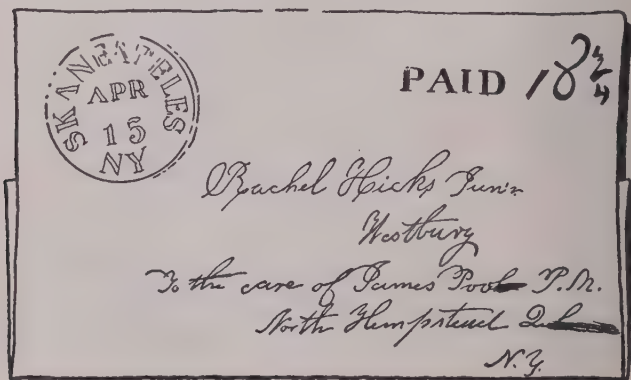 SKANEATELES
APR
15
NY
PAID 18 3/4
Rachel Hicks Junr
Westbury
To the care of James Pool P.M.
North Hempstead
N.Y.